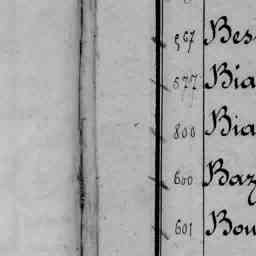 567 Bes
577 Bia
800 Bia
600 Baz
601 Bou